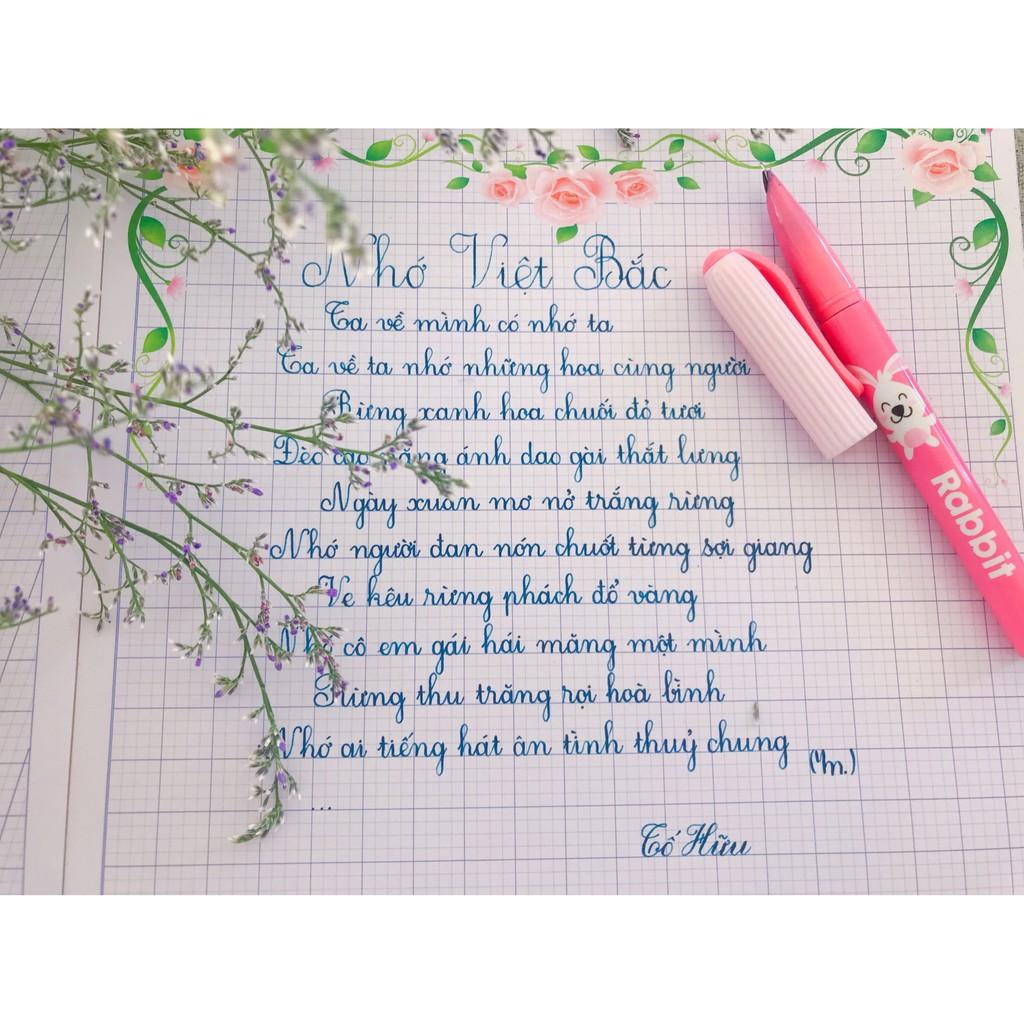 Nhớ Việt Bắc
Ta về mình có nhớ ta
Ta về ta nhớ những hoa cùng người
Rừng xanh hoa chuối đỏ tươi
Đèo cao nắng ánh dao gài thắt lưng
Ngày xuân mơ nở trắng rừng
Nhớ người đan nón chuốt từng sợi giang
Ve kêu rừng phách đổ vàng
Nhớ cô em gái hái măng một mình
Rừng thu trăng rọi hoà bình
Nhớ ai tiếng hát ân tình thuỷ chung
...
Tố Hữu
Rabbit